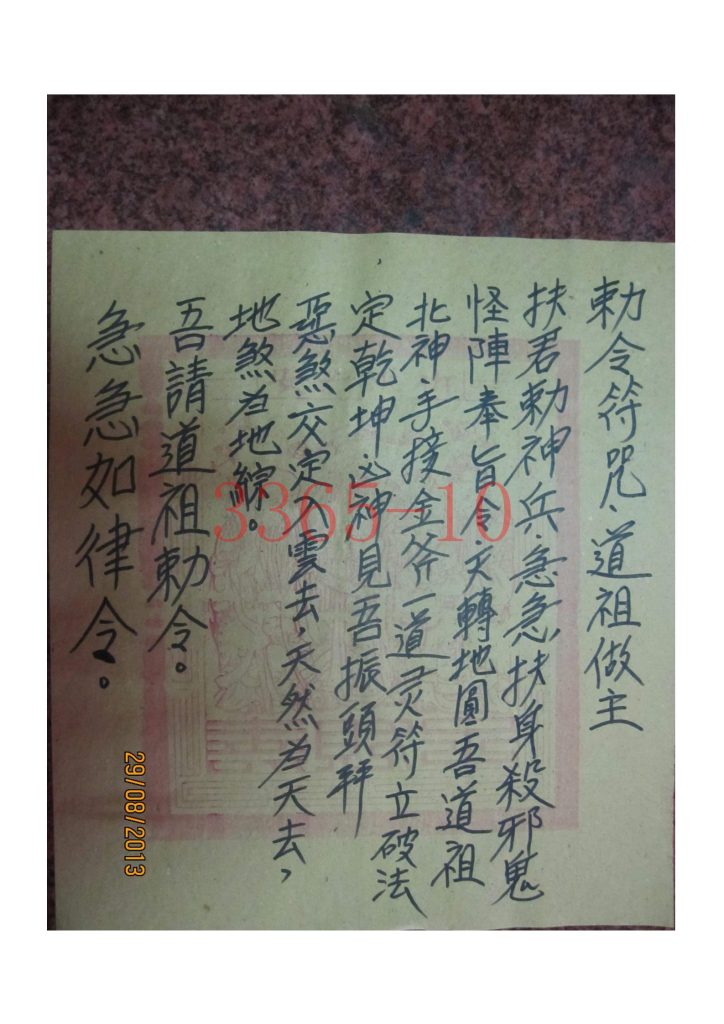 勅令符咒、道祖做主
扶君勅神兵、急急扶身殺邪鬼
怪陣奉旨令天轉地圓吾道祖
北神手接金斧一道灵符立破法
定乾坤凶神見吾振頭拜
惡煞交定入雲去，天然為天去，
地煞为地綜。
吾請道祖勅令。
急急如律令。
3365-10
29/08/2013